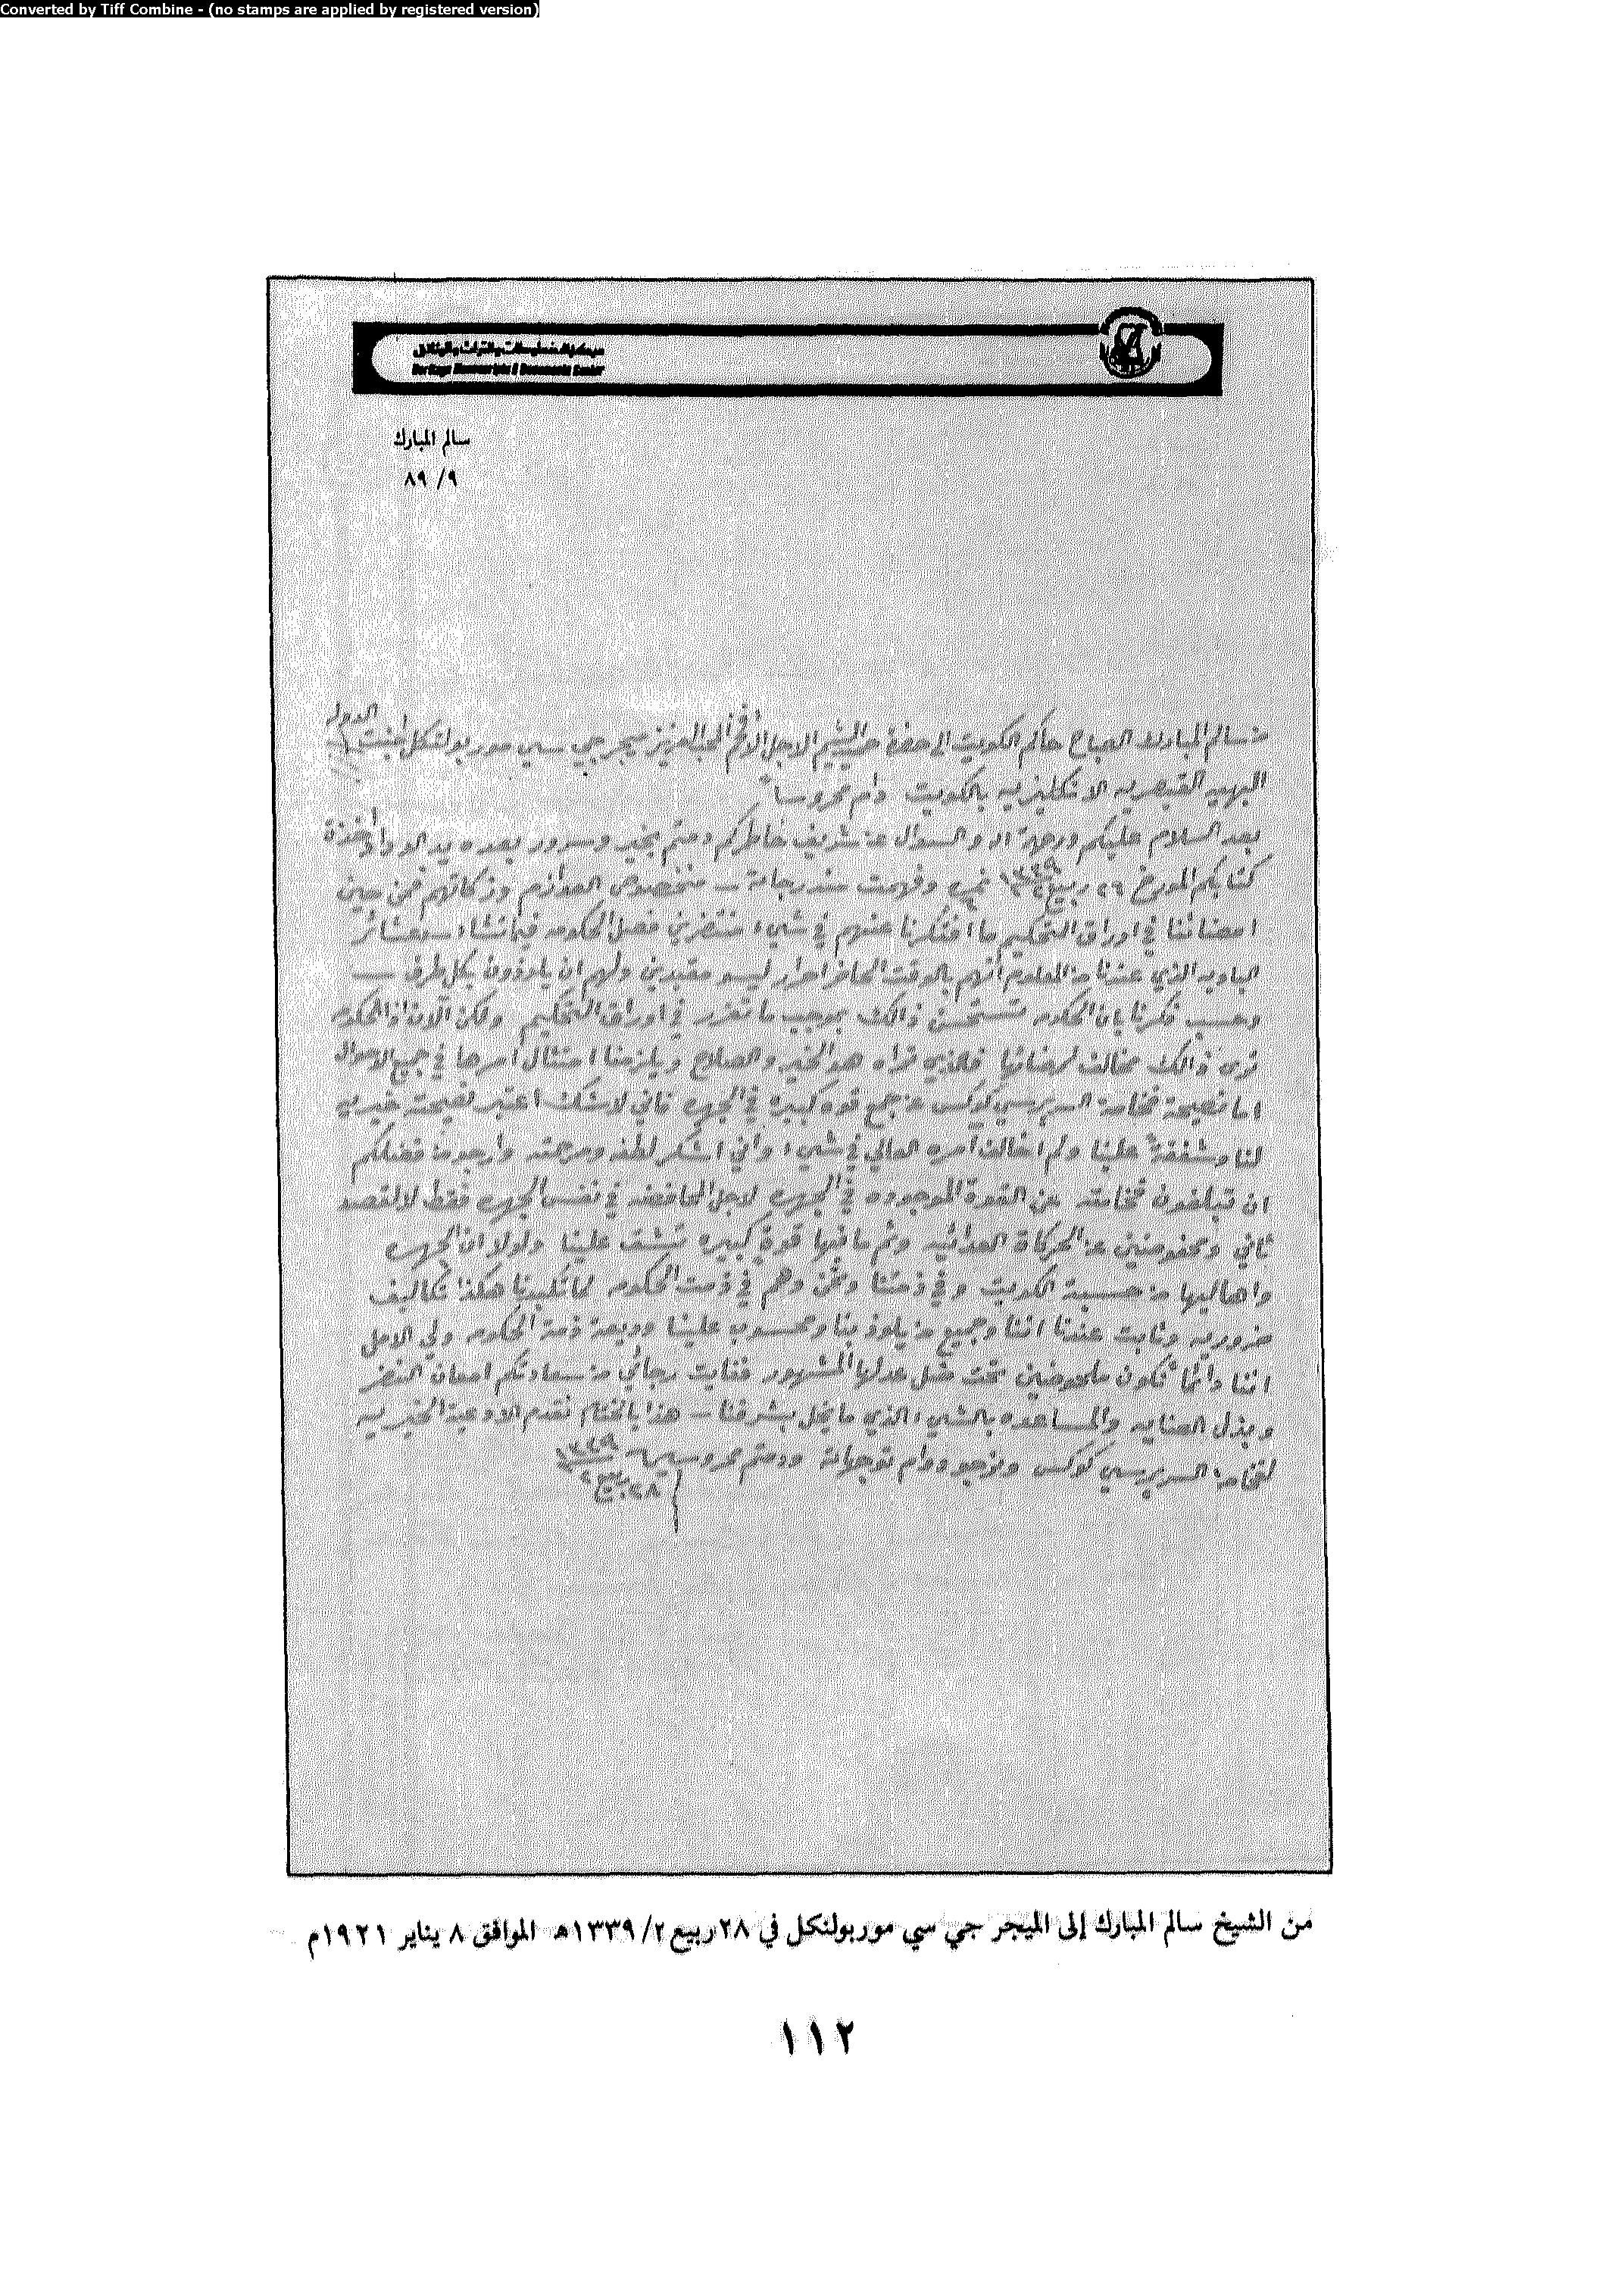 Converted by Tiff Combine - (no stamps are applied by registered version)
مركز المخطوطات والتراث والوثائق
Heritage Manuscripts & Documents Center
سالم المبارك
٨٩ /٩
من سالم المبارك الصباح حاكم الكويت الى حضرة حميد الشيم الاجل الافخم المحب العزيز ميجر جي سي مور بولتكل اجنت الدوله
البهيه القيصريه الانكليزيه بالكويت دام محروسا
بعد السلام عليكم ورحمة الله والسوال عن شريف خاطركم دمتم بخير وسرور بعده بيد الوداد أخذنا
كتابكم المورخ ٢٦ ربيع٢ ١٣٣٩ نمره وفهمت مندرجاته – من خصوص العوازم وزكاتهم فمن حين
امضائنا في اوراق التحكيم ما افتكرنا عنهم في شيء منتضرين فصل الحكومه فيما نشاء من عشائر
الباديه الذي عندنا من المعلوم أنهم بالوقت الحاضر احرار ليسو مقيدين ولهم ان يلوذون بكل طرف –
وحسب فكرنا بان الحكومه تستحسن ذالك بموجب ما تقرر في اوراق التحكيم ولكن الآن اذا الحكومه
ترى ذالك مخالف لرضائها فالذي تراه هو الخير والصلاح ويلزمنا امتثال امرها في جميع الاحوال
اما نصيحة فخامة السر برسي كوكس عن جمع قوه كبيره في الجهره فاني لاشك اعتبر نصيحته خيريه
لنا وشفقةً علينا ولم اخالف أمره العالي في شيء واني اشكر لطفه ومرحمته وارجو من فضلكم
ان تبلغون فخامته عن القوة الموجوده في الجهره لاجل المحافضه في نفس الجهره فقط لا لقصد
ثاني ومحفوضين عن الحركاة العدائيه وثم ما فيها قوة كبيره تشق علينا ولولا ان الجهره
واهاليها من حسبة الكويت وفي ذمتنا ونحن وهم في ذمت الحكومه لما تكبدنا هكذا تكاليف
ضروريه وثابت عندنا اننا وجميع من يلوذ بنا ومحسوب علينا وديعة ذمة الحكومه ولي الامل
اننا دائما نكون ملحوضين تحت ضل عدلها المشهور فغايت رجائي من سعادتكم امعان النضر
وبذل العنايه والمساعده بالشيء الذي ما يخل بشرفنا – هذا بالختام نقدم الادعية الخيريه
لفخامة السر برسي كوكس ونرجو دوام توجهاته ودمتم محروسين
٢٨ ربيع٢ ١٣٣٩
من الشيخ سالم المبارك إلى الميجر جي سي موربولتكل في ٢٨ربيع ١٣٣٩/٢هـ الموافق ٨ يناير ١٩٢١م
١١٢